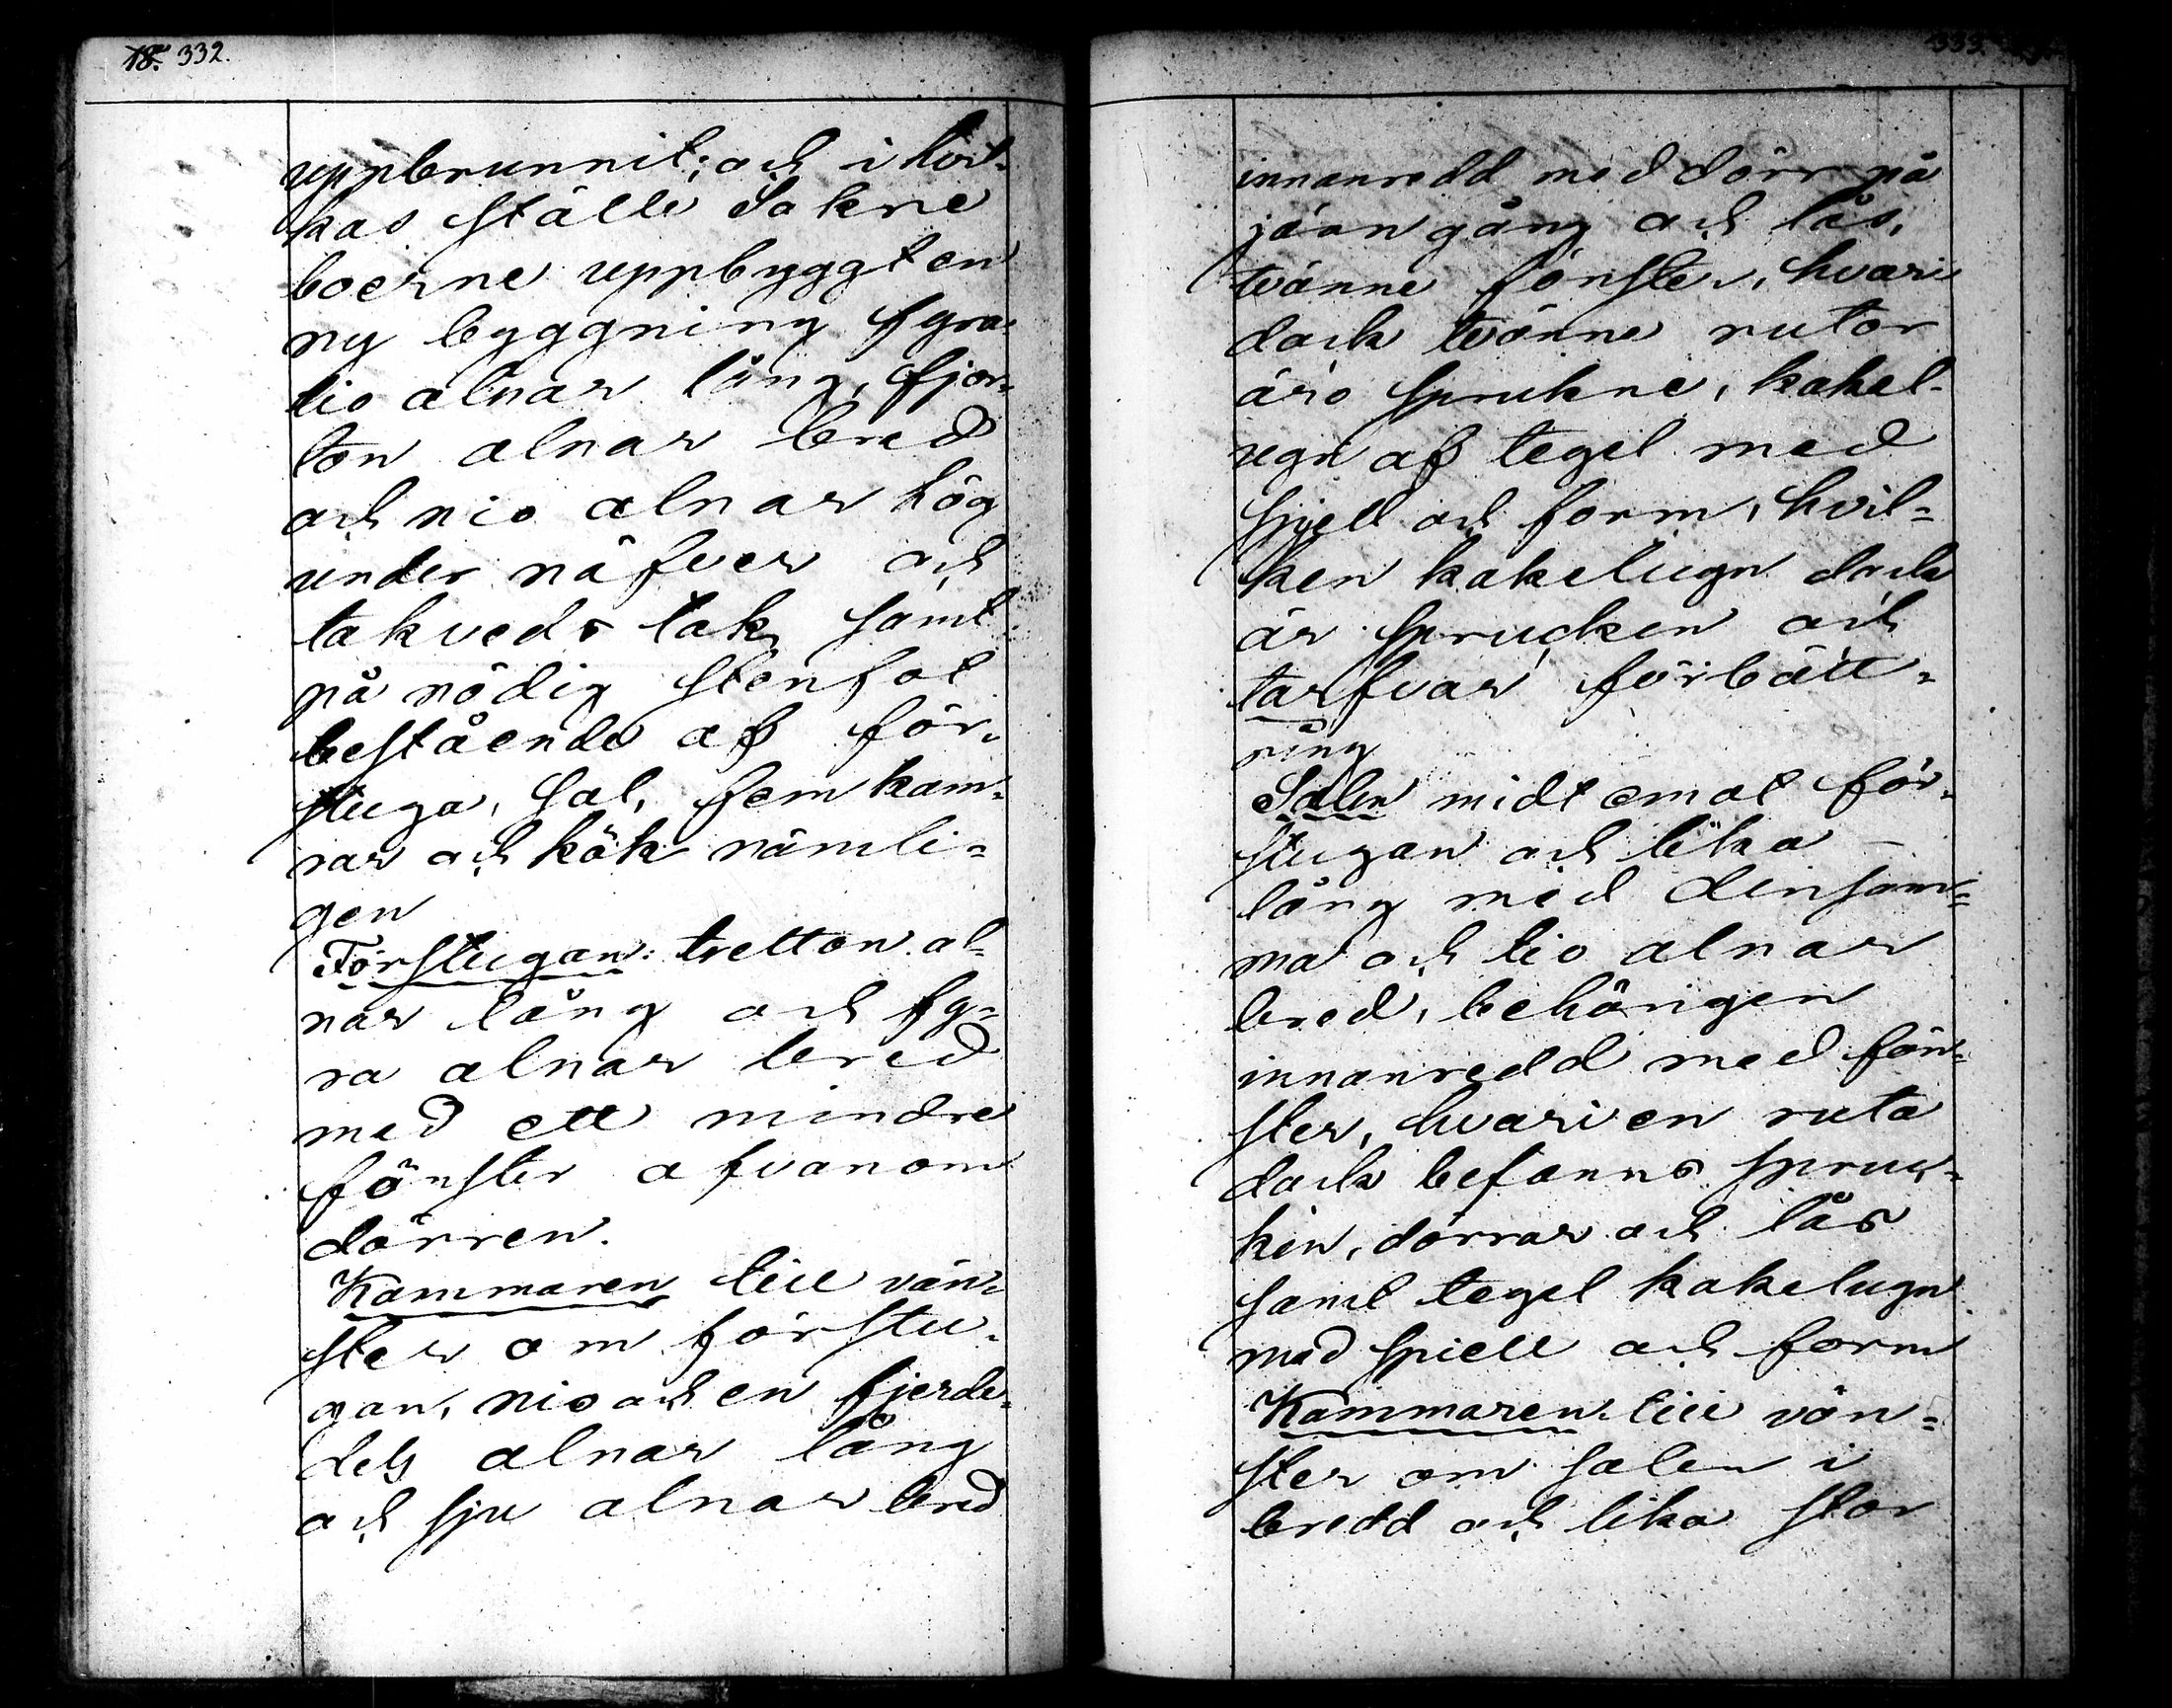 18. 332.
uppbrunnit; och i hvil-
kas ställe Sokne
boerne uppbyggt en
ny byggning fyra-
tio alnar lång, fjor-
ton alnar bred
och nio alnar hög
under näfver och
takveds tak, samt
på nödig stenfot
bestående af för-
stuga, Sal, fem kam-
rar och kök nämli-
gen
Förstugan: tretton al-
nar lång och fy-
ra alnar bred
med ett mindre
fönster ofvanom
dörren.
Kammaren till vän-
ster om förstu-
gan, nio och en fjerde-
dels alnar lång
och sju alnar bred
333.
innanredd med dörr på
järn gång och lås,
tvänne fönster, hvari
dock tvänne rutor
äro sprukne, kakel-
ugn af tegel med
spjell och form, hvil-
ken kakelugn dock
är sprucken och
tarfvar förbätt-
ring
Salen midt emot för-
stugan och lika
lång med densam-
ma och tio alnar
bred, behörigen
innanredd med fön-
ster, hvari en ruta
dock befanns spruc-
ken, dörrar och lås
samt tegel kakelugn
med spiell och form
Kammaren till vän-
ster om salen i
bredd och lika stor